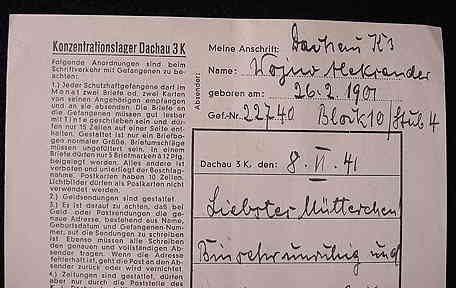 Konzentrationslager Dachau 3 K
Folgende Anordnungen sind beim
Schriftverkehr mit Gefangenen zu be-
achten:
1.) Jeder Schutzhaftgefangene darf im
Monat zwei Briefe od. zwei Karten
von seinen Angehörigen empfangen
und an sie absenden. Die Briefe an
die Gefangenen müssen gut lesbar
mit Tinte geschrieben sein und dür-
fen nur 15 Zeilen auf einer Seite ent-
halten. Gestattet ist nur ein Briefbo-
gen normaler Größe. Briefumschläge
müssen ungefüttert sein. In einem
Briefe dürfen nur 5 Briefmarken à 12 Pfg.
beigelegt werden. Alles andere ist
verboten und unterliegt der Beschlag-
nahme. Postkarten haben 10 Zeilen.
Lichtbilder dürfen als Postkarten nicht
verwendet werden.
2.) Geldsendungen sind gestattet.
3.) Es ist darauf zu achten, daß bei
Geld oder Postsendungen die ge-
naue Adresse, bestehend aus Name,
Geburtsdatum und Gefangenen-Num-
mer, auf die Sendungen zu schreiben
ist. Ebenso müssen alle Schreiben
den genauen und vollständigen Ab-
sender tragen. Wenn die Adresse
fehlerhaft ist, geht die Post an den Ab-
sender zurück oder wird vernichtet.
4.) Zeitungen sind gestattet, dürfen
aber nur durch die Poststelle des
Absender:
Meine Anschrift: Dachau K3
Name: Wojno Aleksander
geboren am: 26.2.1901
Gef.-Nr. 22740 Block 10 / Stub 4
Dachau 3 K, den: 8. VI. 41
Liebster Mütterchen
Bin sehr unruhig und